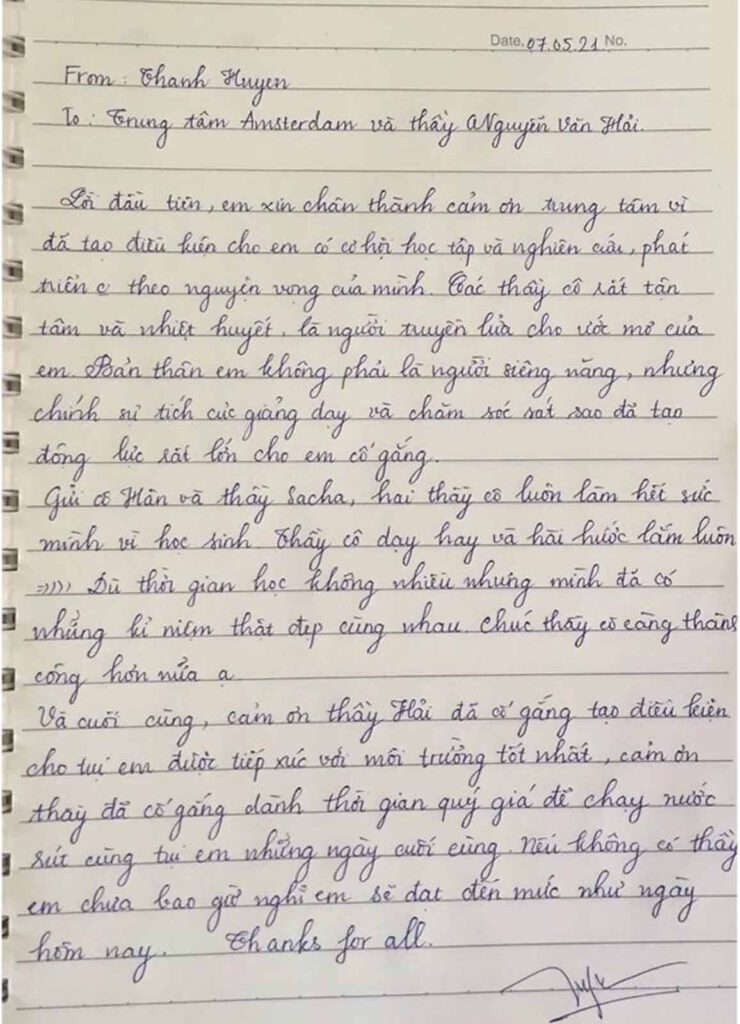 Date. 07.05.21 No.
From: Thanh Huyen
To: Trung tâm Amsterdam và thầy Nguyễn Văn Hải.
Lời đầu tiên, em xin chân thành cảm ơn trung tâm vì
đã tạo điều kiện cho em có cơ hội học tập và nghiên cứu, phát
triển c theo nguyện vọng của mình. Các thầy cô rất tận
tâm và nhiệt huyết, là người truyền lửa cho ước mơ của
em. Bản thân em không phải là người siêng năng, nhưng
chính sự tích cực giảng dạy và chăm sóc sát sao đã tạo
động lực rất lớn cho em cố gắng.
Gửi cô Hân và thầy Sacha, hai thầy cô luôn làm hết sức
mình vì học sinh. Thầy cô dạy hay và hài hước lắm luôn
=)))) Dù thời gian học không nhiều nhưng mình đã có
những kỉ niệm thật đẹp cùng nhau. Chúc thầy cô càng thành
công hơn nữa ạ
Và cuối cùng, cảm ơn thầy Hải đã cố gắng tạo điều kiện
cho tụi em được tiếp xúc với môi trường tốt nhất, cảm ơn
thaỳ đã cố gắng dành thời gian quý giá để chạy nước
rút cùng tụi em những ngày cuối cùng. Nếu không có thầy
em chưa bao giờ nghĩ em sẽ đạt đến mức như ngày
hôm nay. Thanks for all.